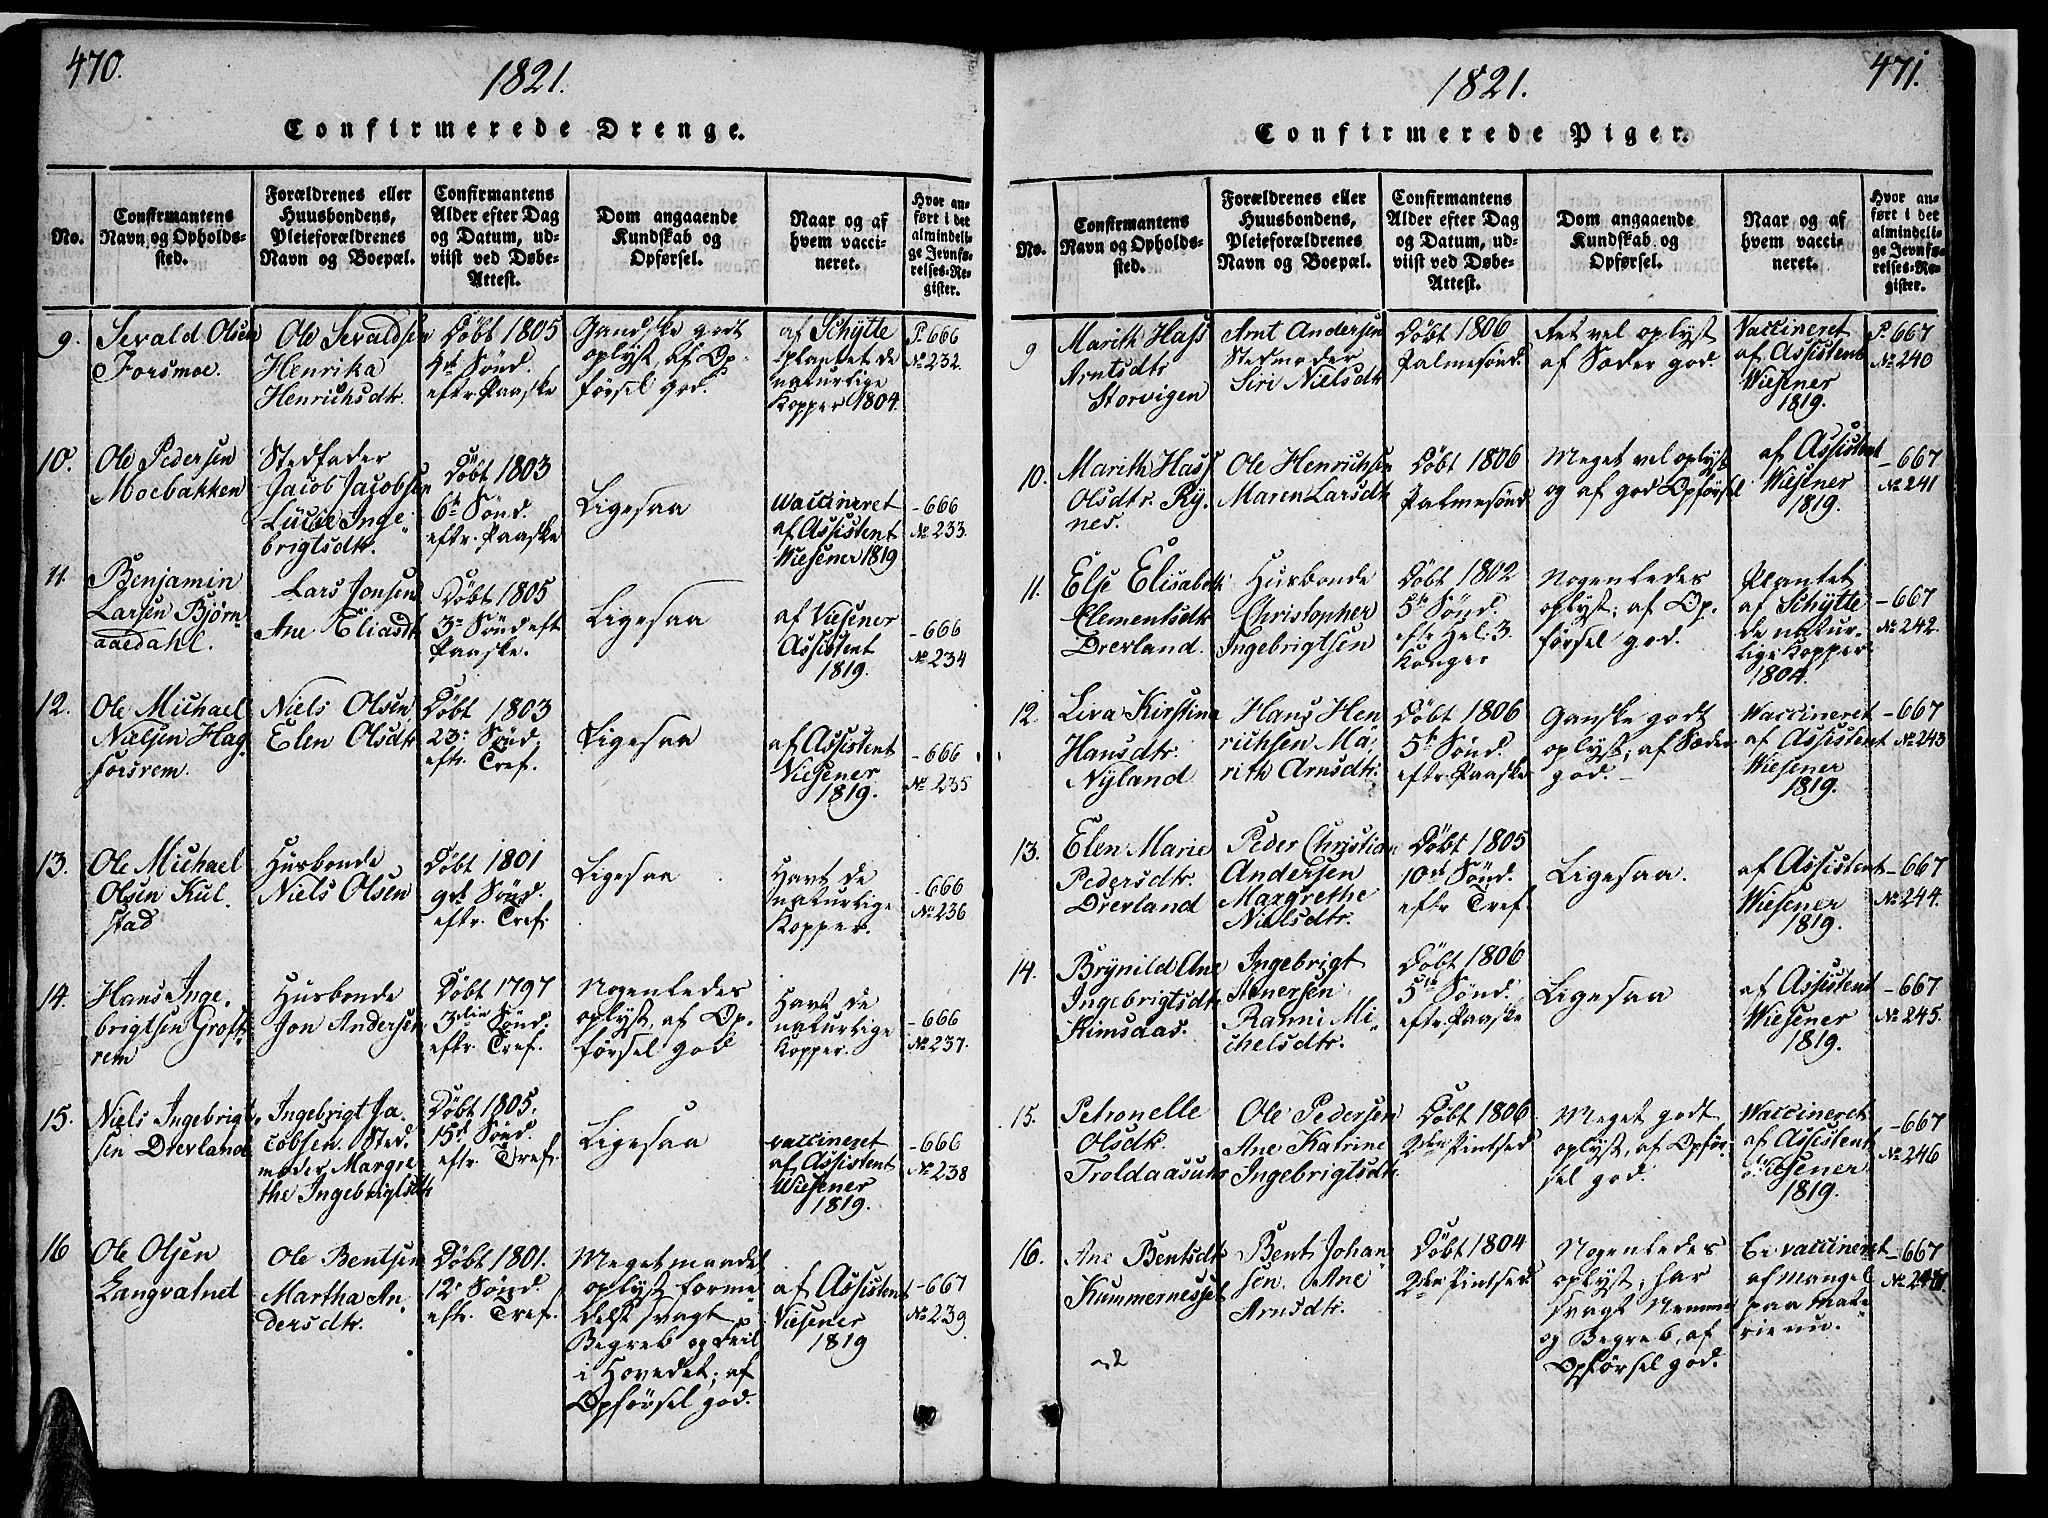 470.
1821.
Confirmerede Drenge.
No.
Confirmantens
Navn og Opholds-
sted.
Forældrenes eller
Huusbondens,
Pleieforældrenes
Navn og Boepæl.
Confirmantens
Alder efter Dag
og Datum, ud-
viist ved Døbe-
Attest.
Dom angaaende
Kundskab og
Opførsel.
Naar og af
hvem vacci-
neret.
Hvor an-
ført i det
almindeli-
ge Jevnfø-
relses-Re-
gister.
9.
Sevald Olsen
Forsmoe.
Ole Sevaldsen
Henrika
Henrichsdtr.
Døbt 1805
4de Sønd.
eftr. Paaske
Gandske godt
oplyst, af Op-
førsel god.
af Schytte
plantet de
naturlige
Kopper 1804.
P. 666
No 232.
10.
Ole Pedersen
Moebakken
Stedfader
Jacob Jacobsen
Lucie Inge-
brigtsdtr.
Døbt 1803
6te Sønd.
eftr. Paaske
Ligesaa
vaccineret
af Assistent
Wiesener 1819
- 666
No 233.
11.
Benjamin
Larsen Bjørn-
aaedahl.
Lars Jonsen
Ane Eliasdtr
Døbt 1805
3die Sønd eft
Paaske.
Ligesaa
af Viesener
Assistent
1819.
- 666
No 234
12.
Ole Michael
Nielsen Hag-
forsrem.
Niels Olsen
Elen Olsdtr
Døbt 1803
23: Sønd.
eftr. Tref.
Ligesaa
af Assistent
Viesener
1819.
- 666
No 235
13.
Ole Michael
Olsen Kul-
stad
Husbonde
Niels Olsen
Døbt 1801
9de Sønd.
eftr. Tref.
Ligesaa
Havt de
naturlige
Kopper.
- 666
No 236
14.
Hans Inge-
brigtsen Groft-
rem
Husbonde
Jon Andersen
Døbt 1797
3die Sønd.
eftr. Tref.
Nogenledes
oplyst, af Op-
førsel god
Havt de
naturlige
Kopper.
- 666
No 237.
15.
Niels Ingebrigt-
sen Drevland
Ingebrigt Ja-
cobsen. Sted-
moder Margre-
the Ingebrigtsdtr
Døbt 1805.
15de Sønd.
eftr. Tref.
Ligesaa
vaccineret
af Assistent
Wiesener
1819.
- 666
No 238
16
Ole Olsen
Langvatnet
Ole Bentsen
Martha An-
dersdtr.
Døbt 1801.
12e Sønd.
eftr. Tref.
Meget maadel.
oplyst forme-
delst svagt
Begreb og Feil
i Hovedet; af
Opførsel god.
af Assistent
Viesener
1819
- 667
No 239
471.
1821.
Confirmerede Piger.
No.
Confirmantens
Navn og Opholds-
sted.
Forældrenes eller
Huusbondens,
Pleieforældrenes
Navn og Boepæl.
Confirmantens
Alder efter Dag
og Datum, ud-
viist ved Døbe-
Attest.
Dom angaaende
Kundskab og
Opførsel.
Naar og af
hvem vacci-
neret.
Hvor an-
ført i det
almindeli-
ge Jevnfø-
relses-Re-
gister.
9
Marith Hass
Arntsdtr
Storvigen
Arnt Andersen
Stedmoder
Siri Nielsdtr
Døbt 1806
Palmesønd.
Ret vel oplyst
af Sæder god.
Vaccineret
af Assistent
Wiesener
1819.
P. 667
No 240
10.
Marith Hass
Olsdtr. Ry-
nes.
Ole Henrichsen
Maren Larsdtr
Døbt 1806
Palmesønd.
Meget vel oplyst
og af god Opførsel
af Assistent
Wiesener
1819.
- 667
No 241
11.
Else Elisabeth
Clementsdtr
Drevland.
Husbonde
Christopher
Ingebrigtsen
Døbt 1802
5te Sønd.
eftr Hel: 3.
Konger
Nogenledes
oplyst; af Op-
førsel god.
Plantet
af Schytte
de natur-
lige Kopper
1804.
- 667
No 242.
12.
Liva Kirstina
Hansdtr.
Nyland
Hans Hen-
richsen Ma-
rith Arnsdtr.
Døbt 1806
5te Sønd.
eftr Paaske
Ganske godt
oplyst; af Sæder
god.
Vaccineret
af Assistent
Wiesener
1819.
- 667
No 243
13.
Elen Marie
Pedersdtr.
Drevland
Peder Christian
Andersen
Margrethe
Nielsdtr.
Døbt 1805
10de Sønd.
eftr Tref.
Ligesaa.
af Assistent
Wiesener
1819.
- 667
No 244.
14.
Brynild Ane
Ingebrigtsdtr
Kimsaas.
Ingebrigt
Stenersen
Ranni Mi-
chelsdtr.
Døbt 1806
5te Sønd.
eftr. Paaske
Ligesaa
af Assistent
Wiesener
1819.
- 667
No 245.
15.
Petronelle
Olsdtr.
Troldaasun
Ole Pedersen
Ane Katrine
Ingebrigtsdtr.
Døbt 1806
2den Pintsed.
Meget godt
oplyst, af Opfør-
sel god.
Vaccineret
af Assistent
Wiesener
1819.
- 667
No 246
16.
Ane Bentsdtr
Kummernesset
Bent Johan-
sen. Ane
Arnsdtr.
Døbt 1804
2den Pintsed.
Nogenledes
oplyst; har
svagt Nemme
og Begreb, af
Opførsel god.
Ei vaccineret
af Mangel
paa Mate-
rie nu.
- 667